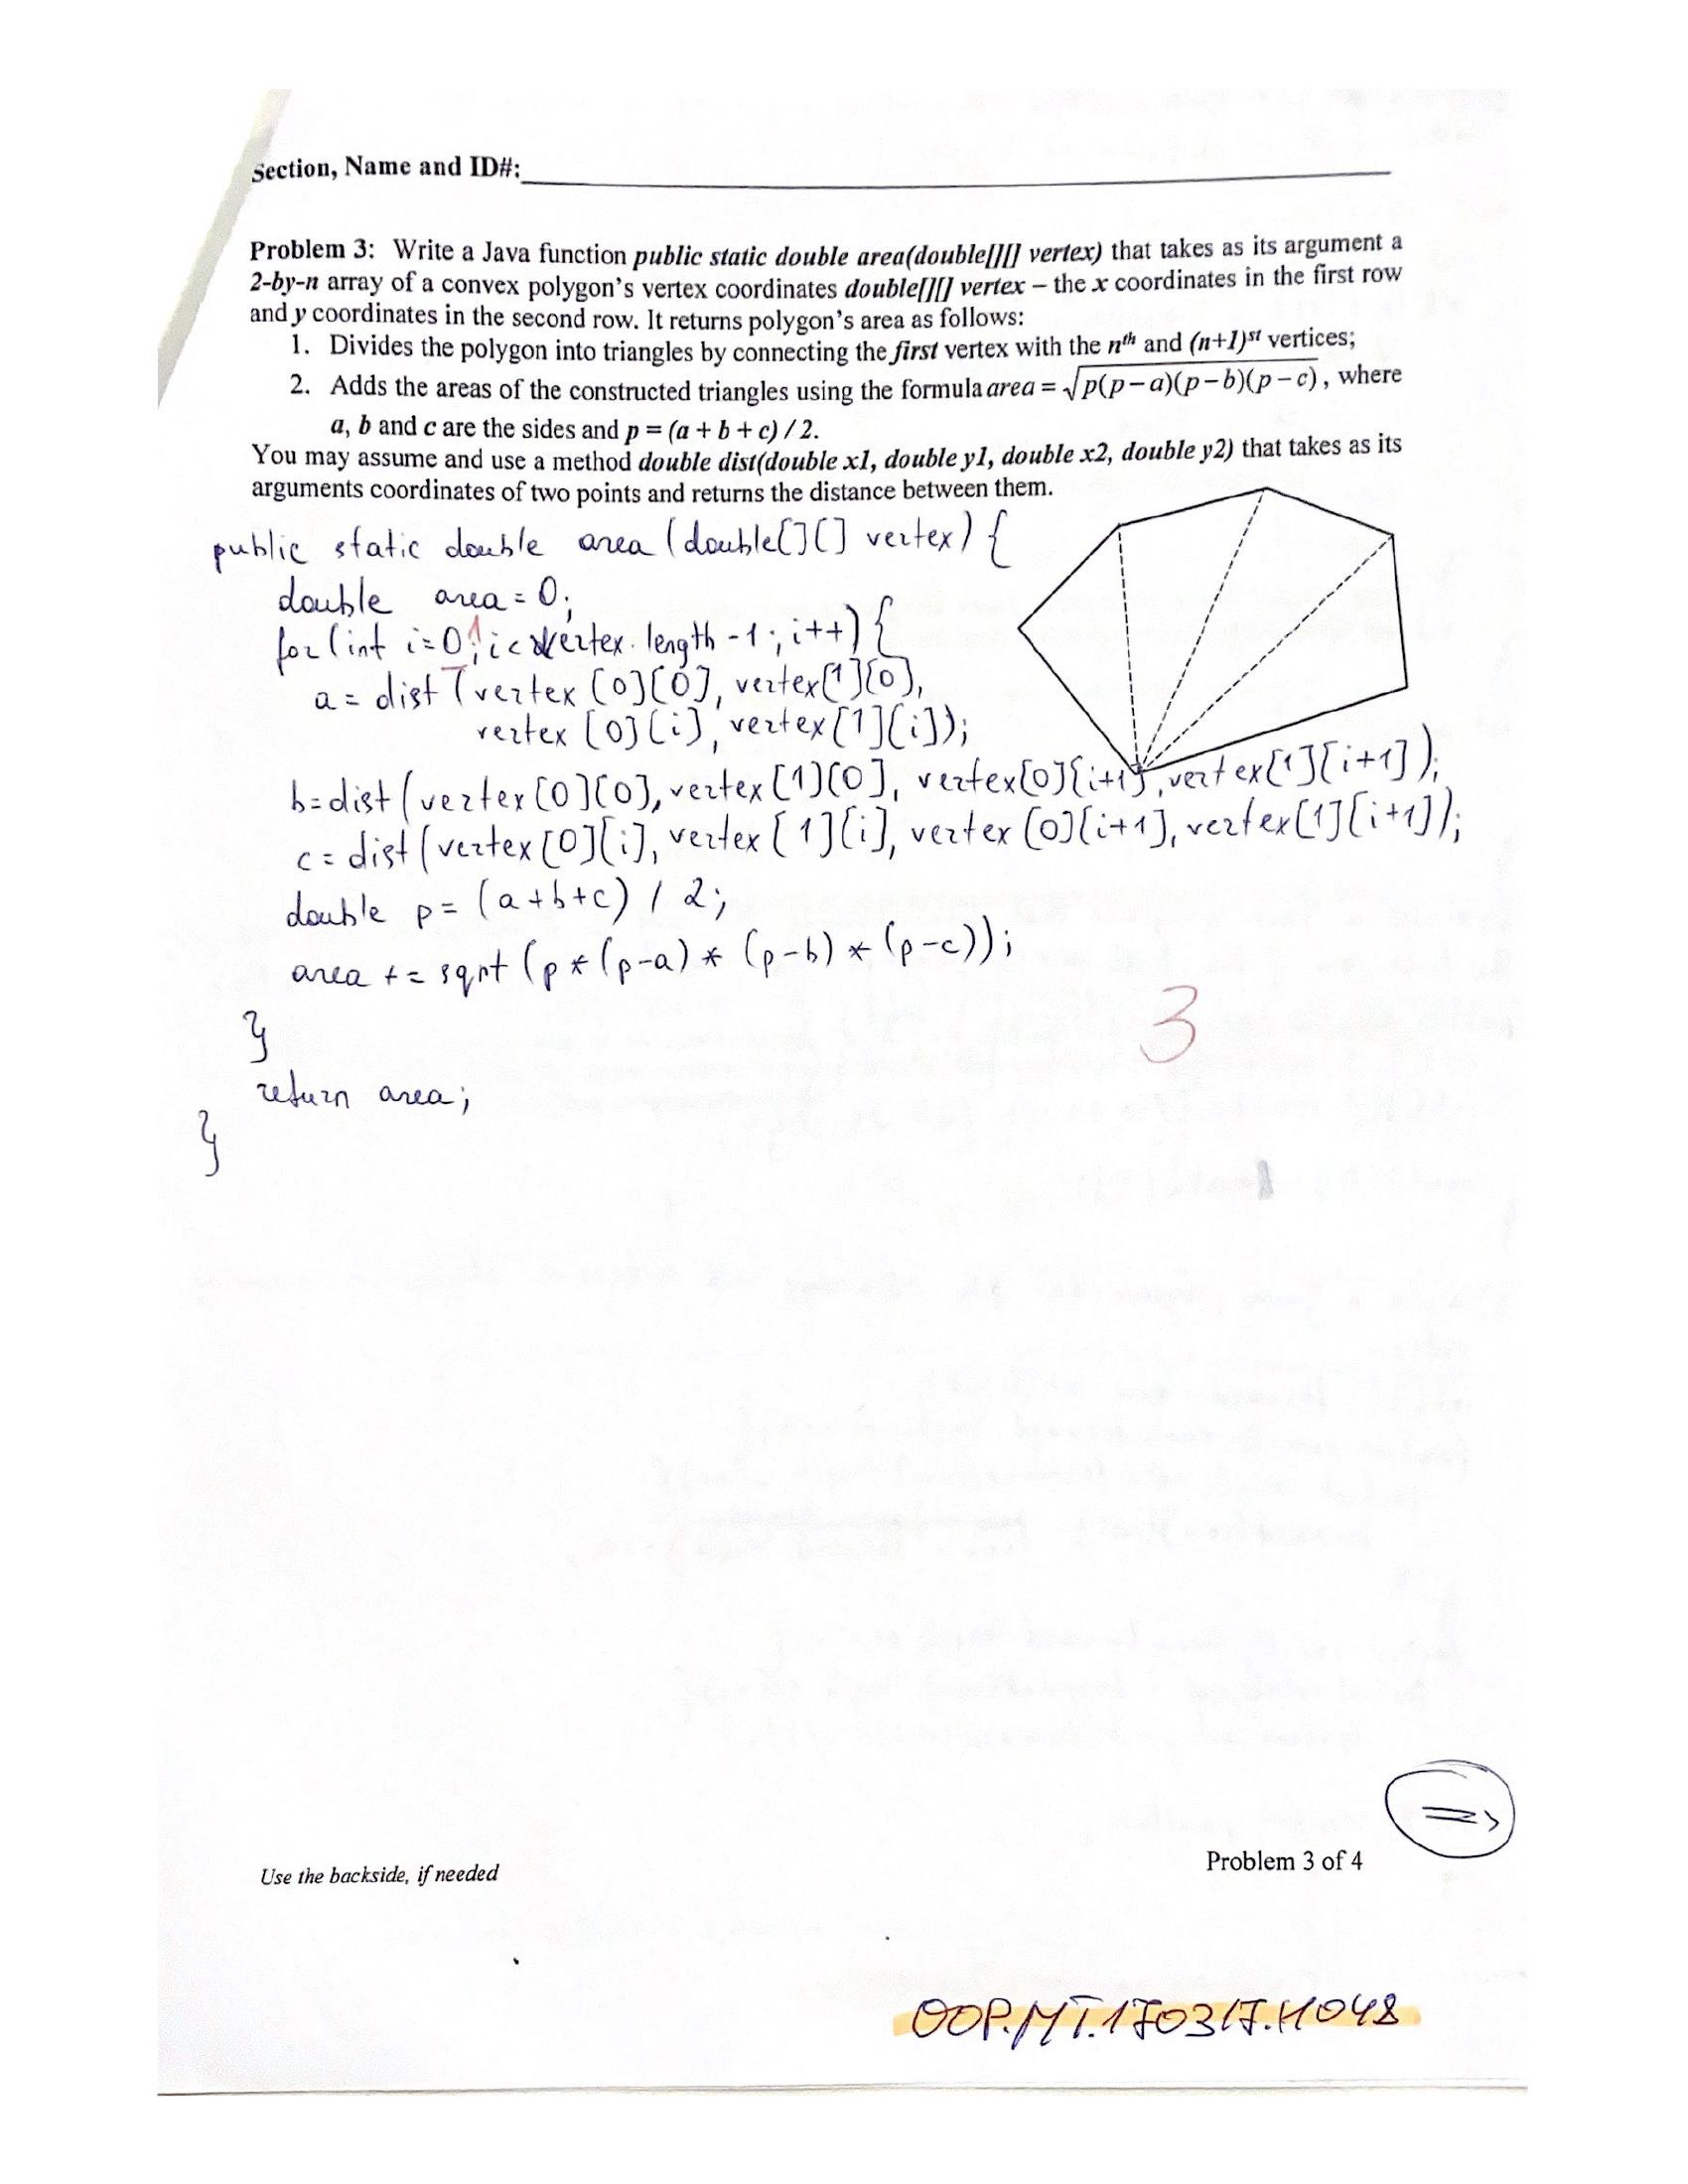 Section, Name and ID#:
Problem 3: Write a Java function public static double area(double[][] vertex) that takes as its argument a
2-by-n array of a convex polygon's vertex coordinates double[][] vertex – the x coordinates in the first row
and y coordinates in the second row. It returns polygon's area as follows:
1. Divides the polygon into triangles by connecting the first vertex with the nth and (n+1)st vertices;
2. Adds the areas of the constructed triangles using the formula area = √p(p−a)(p−b)(p−c), where
a, b and c are the sides and p = (a + b + c) / 2.
You may assume and use a method double dist(double x1, double y1, double x2, double y2) that takes as its
arguments coordinates of two points and returns the distance between them.
public static double area (double[][] vertex) {
double area = 0;
for (int i=0; i< vertex.length -1; i++) {
a = dist (vertex [0][0], vertex[1][0],
vertex [0][i], vertex[1][i]);
b=dist (vertex[0][0], vertex[1][0], vertex[0][i+1], vertex[1][i+1]);
c = dist (vertex[0][i], vertex[1][i], vertex[0][i+1], vertex[1][i+1]);
double p = (a+b+c) / 2;
area += sqrt (p*(p-a) * (p-b) * (p-c));
}
3
return area;
}
=>
Use the backside, if needed
Problem 3 of 4
OOP.MT.170317.H048